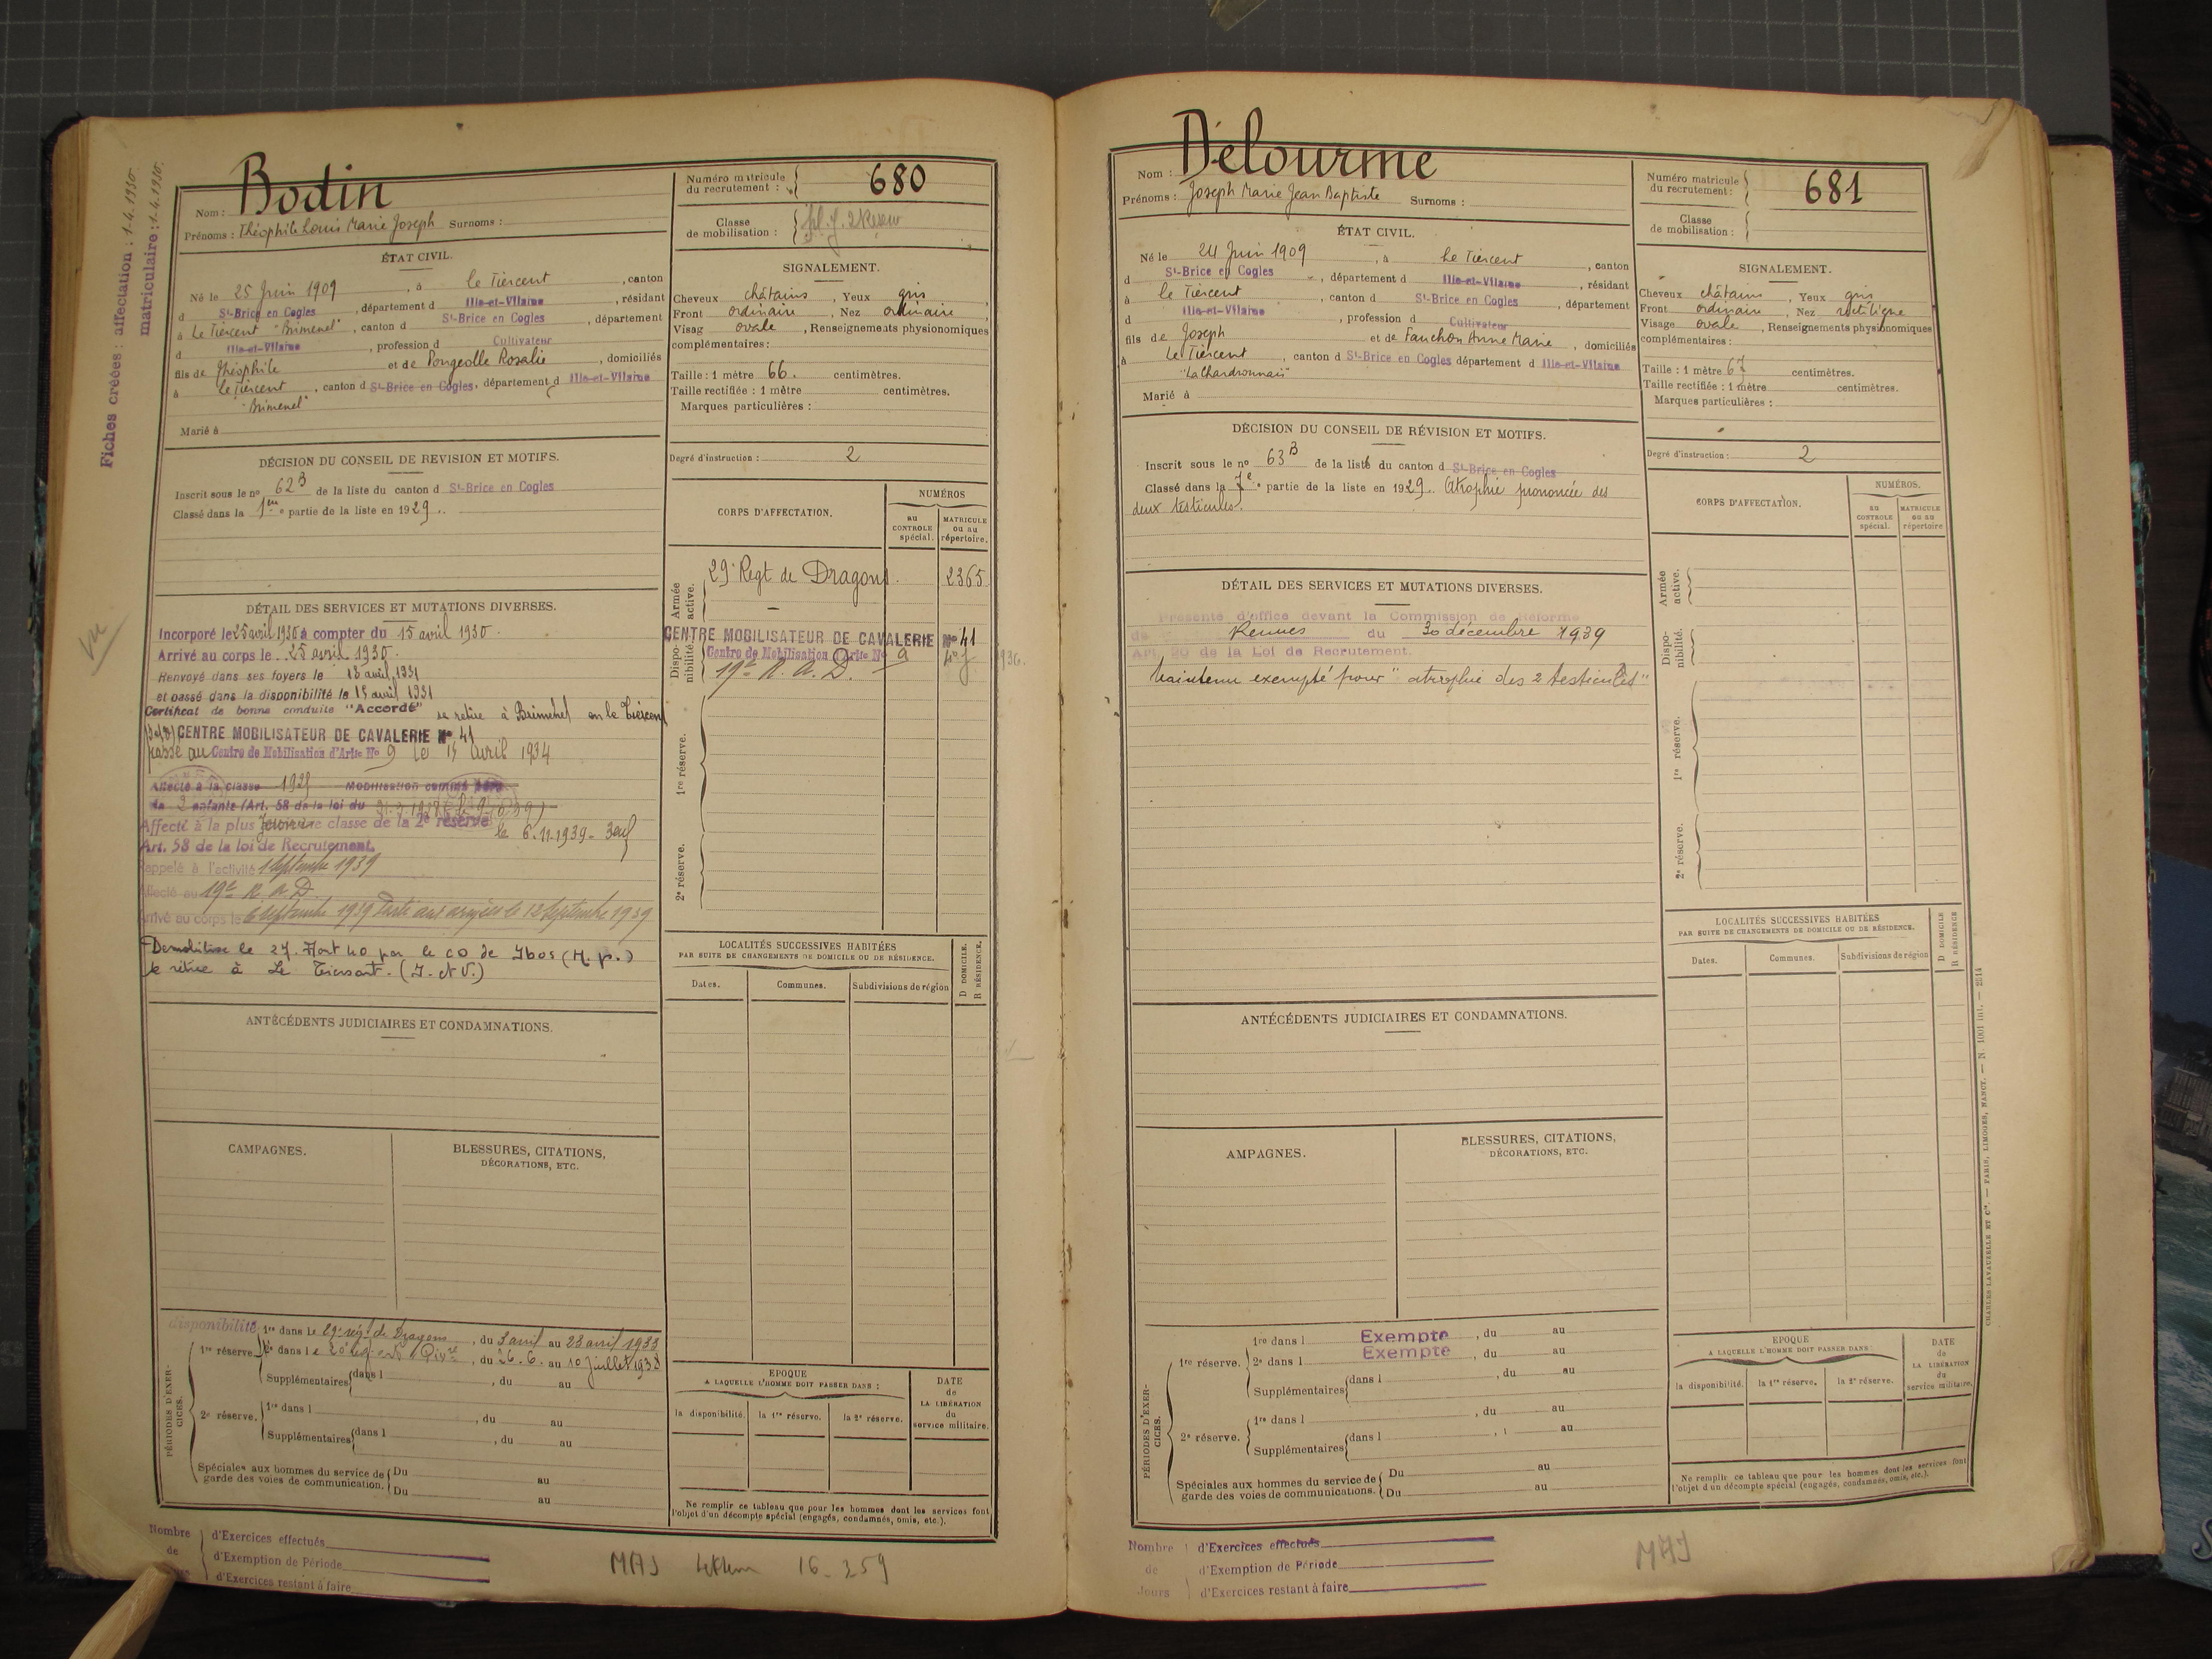 Fiches créées : affectation : 1.4.1930
matriculaire : 1.4.1930.
Nom : Bodin
Prénoms : Théophile Louis Marie Joseph Surnoms :
Numéro matricule
du recrutement :
680
Classe
de mobilisation :
ÉTAT CIVIL.
Né le 25 Juin 1909, à Le Tiercent, canton
d St-Brice en Cogles, département d Ille-et-Vilaine, résidant
à Le Tiercent "Brimenel", canton d St-Brice en Cogles, département
d Ille-et-Vilaine, profession d Cultivateur
fils de Théophile et de Pongeolle Rosalie, domiciliés
à Le Tiercent, canton d St-Brice en Cogles, département d Ille-et-Vilaine
"Brimenel"
Marié à
SIGNALEMENT.
Cheveux châtains, Yeux gris,
Front ordinaire, Nez ordinaire,
Visag ovale, Renseignements physionomiques
complémentaires :
Taille : 1 mètre 66. centimètres.
Taille rectifiée : 1 mètre centimètres.
Marques particulières :
Degré d'instruction : 2
DÉCISION DU CONSEIL DE REVISION ET MOTIFS.
Inscrit sous le no 62 B de la liste du canton d St-Brice en Cogles
Classé dans la 1ère partie de la liste en 1929.
CORPS D'AFFECTATION.
NUMÉROS
au
CONTROLE
spécial.
MATRICULE
ou au
répertoire.
Armée
active.
29e Regt de Dragons. 2365
Dispo-
nibilité.
CENTRE MOBILISATEUR DE CAVALERIE No 41
Centre de Mobilisation d'Artie No 9
19e R.A.D.
1936.
1re réserve.
2e réserve.
DÉTAIL DES SERVICES ET MUTATIONS DIVERSES.
Incorporé le 25 avril 1930 à compter du 15 avril 1930.
Arrivé au corps le 25 avril 1930.
Renvoyé dans ses foyers le 13 avril 1931
et passé dans la disponibilité le 15 avril 1931
Certificat de bonne conduite "Accordé" se retire à Brimenel en le Tiercent
CENTRE MOBILISATEUR DE CAVALERIE No 41
passé au Centre de Mobilisation d'Artie No 9 le 15 avril 1934
Affecté à la classe Mobilisation comme père
de 2 enfants (Art. 58 de la loi du
Affecté à la plus jeune classe de la 2e réserve le 6.11.1939
Art. 58 de la loi de Recrutement.
Rappelé à l'activité 1 Septembre 1939
Affecté au 19e R.A.D.
Arrivé au corps le 6 Septembre 1939 Parti aux armées le 12 Septembre 1939
Demobilise le 27. Aout 40 par le CD de Ibos (H.p.)
se retire à Le Tiersant. (I. et V.)
LOCALITÉS SUCCESSIVES HABITÉES
PAR SUITE DE CHANGEMENTS DE DOMICILE OU DE RÉSIDENCE.
D DOMICILE.
R RÉSIDENCE.
Dates.
Communes.
Subdivisions de région
ANTÉCÉDENTS JUDICIAIRES ET CONDAMNATIONS.
CAMPAGNES.
BLESSURES, CITATIONS,
DÉCORATIONS, ETC.
PÉRIODES D'EXER-
CICES.
disponibilité
1re réserve.
1re dans le 29e régt de Dragons, du 3 avril au 23 avril 1933
2e dans le, du 26.6. au 10 juillet 1938
Supplémentaires dans l, du au
2e réserve.
1re dans l, du au
Supplémentaires dans l, du au
Spéciales aux hommes du service de
garde des voies de communication.
Du au
Du au
EPOQUE
A LAQUELLE L'HOMME DOIT PASSER DANS :
la disponibilité.
la 1re réserve.
la 2e réserve.
DATE
de
LA LIBÉRATION
du
service militaire.
Ne remplir ce tableau que pour les hommes dont les services font
l'objet d'un décompte spécial (engagés, condamnés, omis, etc.).
Nombre
de
Jours
d'Exercices effectués
d'Exemption de Période
d'Exercices restant à faire
MAJ 16.3.59
Nom : Délourme
Prénoms : Joseph Marie Jean Baptiste Surnoms :
Numéro matricule
du recrutement :
681
Classe
de mobilisation :
ÉTAT CIVIL.
Né le 24 Juin 1909, à Le Tiercent, canton
d St-Brice en Cogles, département d Ille-et-Vilaine, résidant
à Le Tiercent, canton d St-Brice en Cogles, département
d Ille-et-Vilaine, profession d Cultivateur
fils de Joseph et de Fauchon Anne Marie, domiciliés
à Le Tiercent, canton d St-Brice en Cogles département d Ille-et-Vilaine
"La Chardronnais"
Marié à
SIGNALEMENT.
Cheveux châtains, Yeux gris
Front ordinaire, Nez rectiligne
Visage ovale, Renseignements physionomiques
complémentaires :
Taille : 1 mètre 67 centimètres.
Taille rectifiée : 1 mètre centimètres.
Marques particulières :
Degré d'instruction : 2
DÉCISION DU CONSEIL DE RÉVISION ET MOTIFS.
Inscrit sous le no 63 B de la liste du canton d St-Brice en Cogles
Classé dans la 7e partie de la liste en 1929. Atrophie prononcée des
deux testicules.
CORPS D'AFFECTATION.
NUMÉROS.
au
CONTROLE
spécial.
MATRICULE
ou au
répertoire
Armée
active.
Dispo-
nibilité.
1re réserve.
2e réserve.
DÉTAIL DES SERVICES ET MUTATIONS DIVERSES.
Présenté d'office devant la Commission de Réforme
de Rennes du 30 décembre 1939
Art. 20 de la Loi de Recrutement.
Maintenu exempté pour "atrophie des 2 testicules"
LOCALITÉS SUCCESSIVES HABITÉES
PAR SUITE DE CHANGEMENTS DE DOMICILE OU DE RÉSIDENCE.
D DOMICILE
R RÉSIDENCE
Dates.
Communes.
Subdivisions de région
ANTÉCÉDENTS JUDICIAIRES ET CONDAMNATIONS.
AMPAGNES.
BLESSURES, CITATIONS,
DÉCORATIONS, ETC.
PÉRIODES D'EXER-
CICES.
1re réserve.
1re dans l Exempte, du au
2e dans l Exempte, du au
Supplémentaires dans l, du au
2e réserve.
1re dans l, du au
Supplémentaires dans l au
Spéciales aux hommes du service de
garde des voies de communications.
Du au
Du au
EPOQUE
A LAQUELLE L'HOMME DOIT PASSER DANS :
la disponibilité.
la 1re réserve.
la 2e réserve.
DATE
de
LA LIBÉRATION
du
service militaire.
Ne remplir ce tableau que pour les hommes dont les services font
l'objet d'un décompte spécial (engagés, condamnés, omis, etc.).
CHARLES-LAVAUZELLE ET Cie — PARIS, LIMOGES, NANCY. — N. 1001 int. — 2814
Nombre
de
Jours
d'Exercices effectués
d'Exemption de Période
d'Exercices restant à faire
MAJ